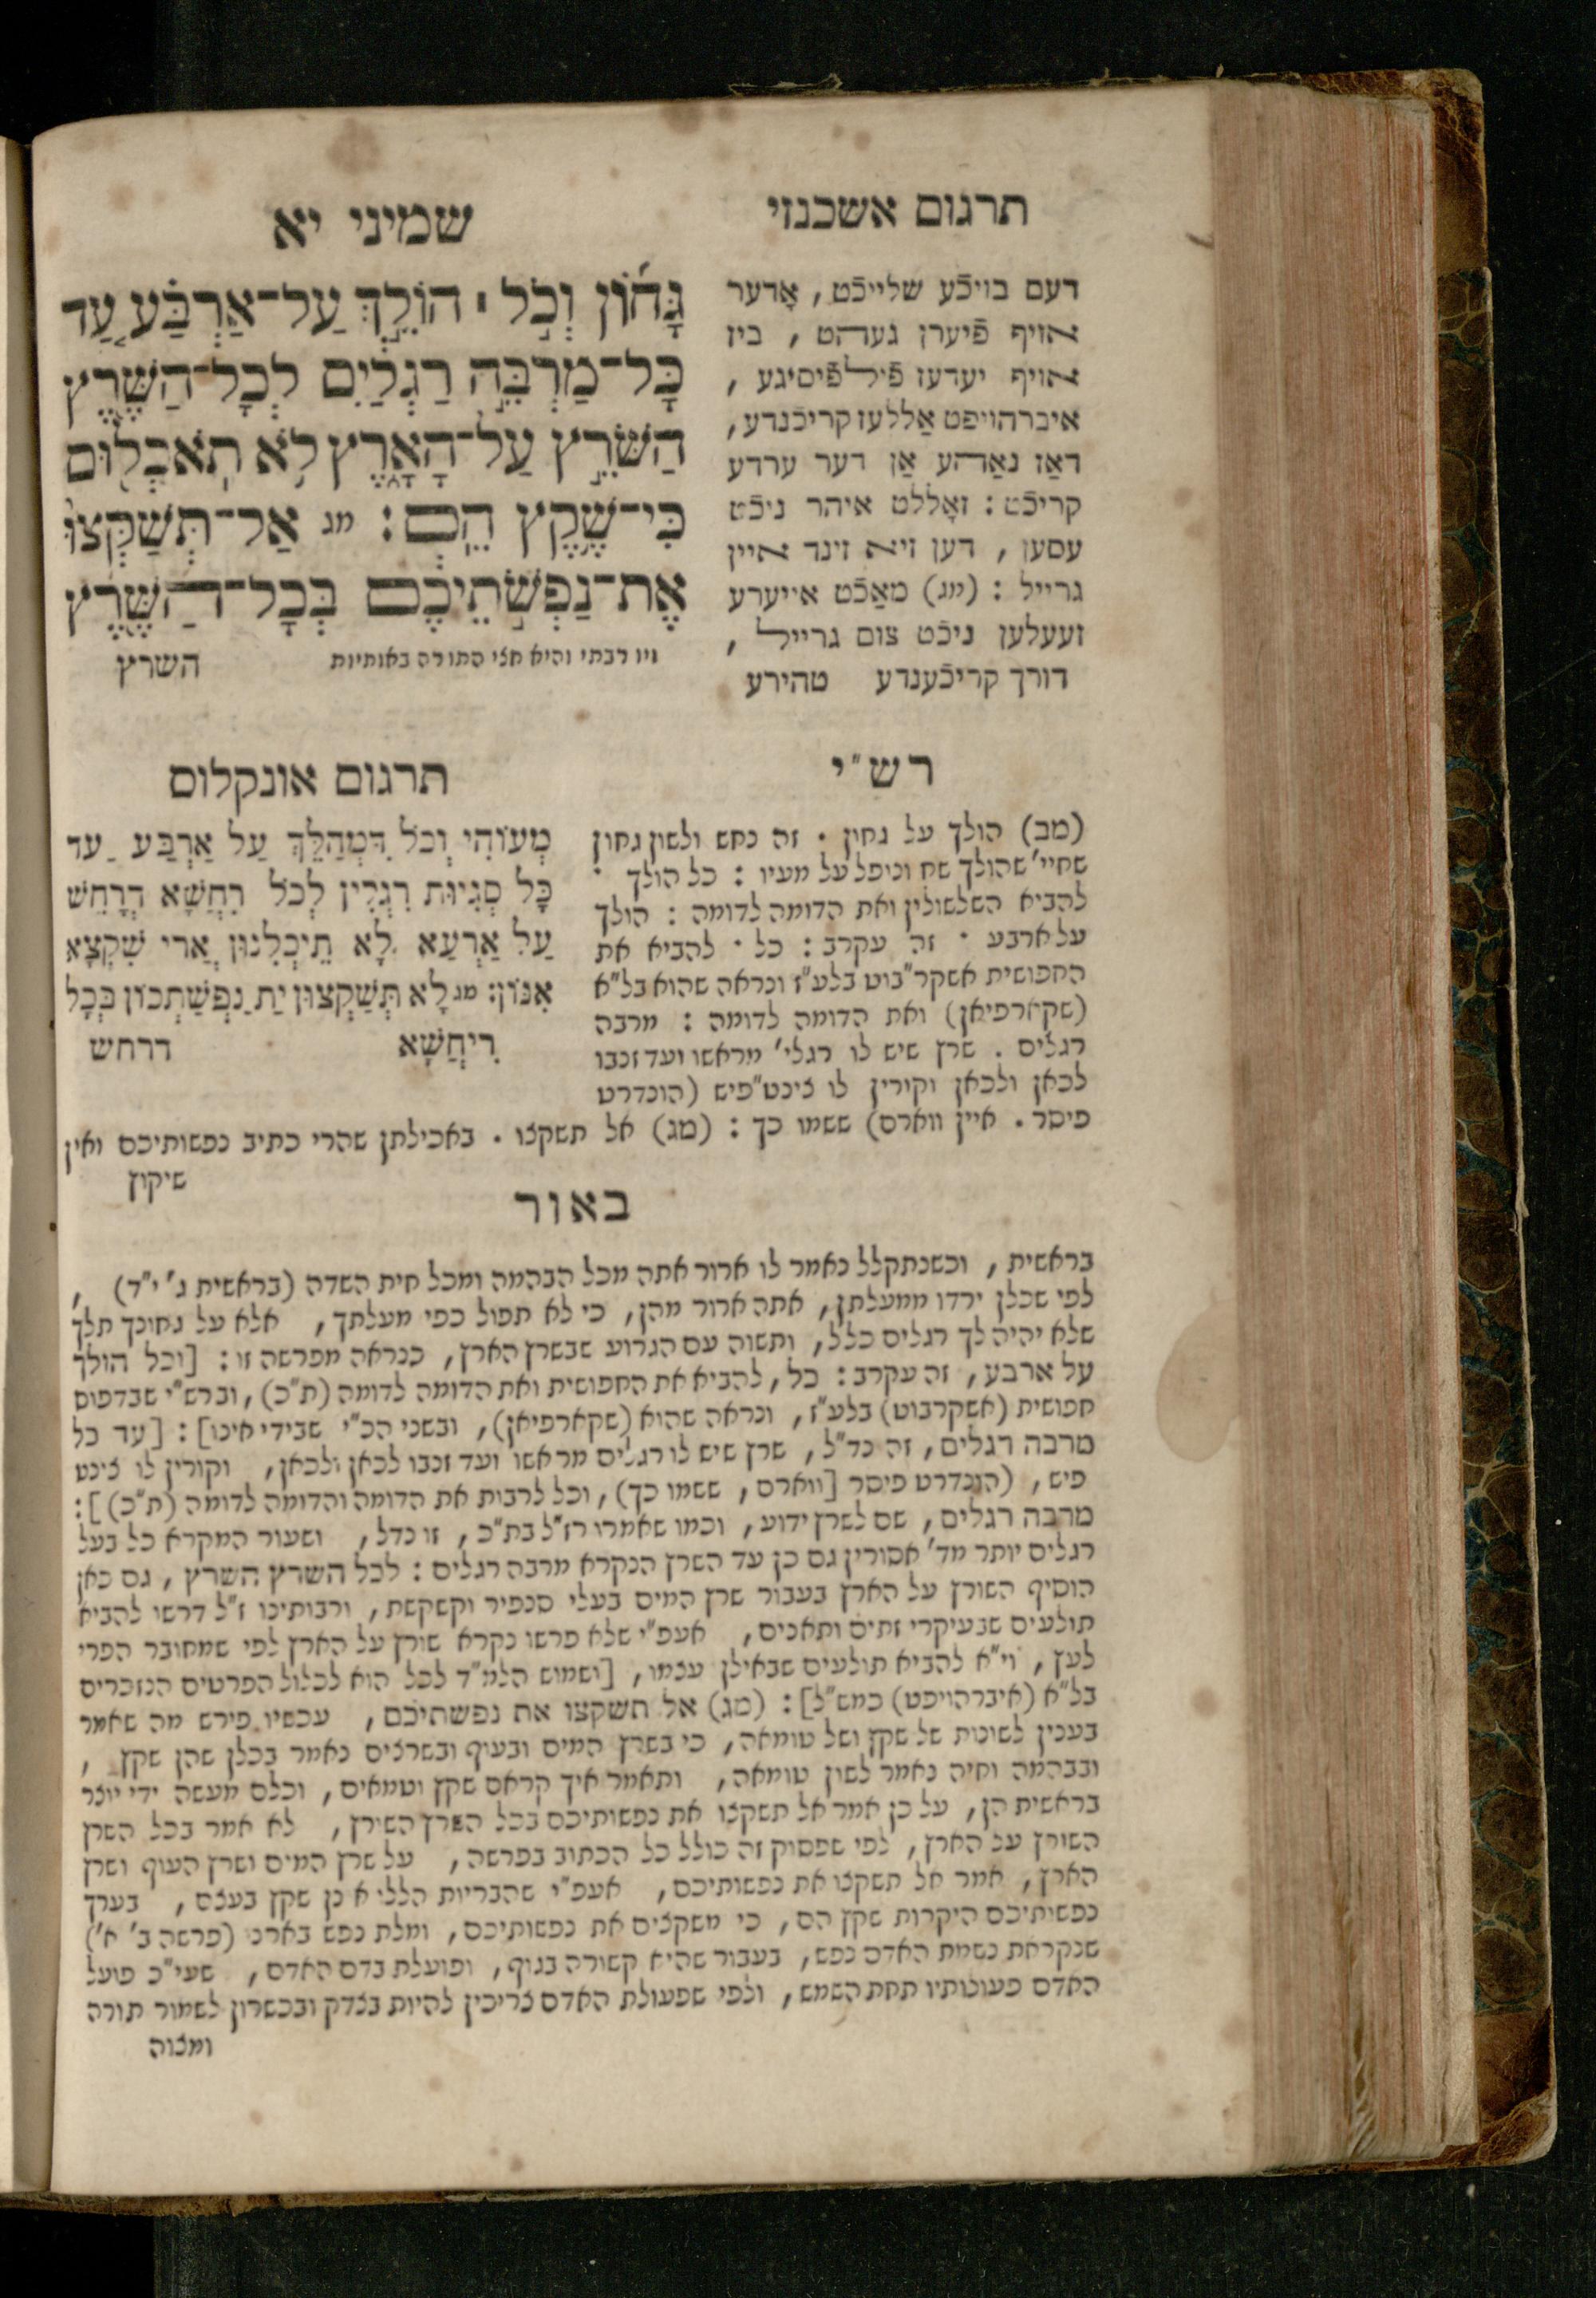 תרגום אשכנזי
שמיני יא
דעם בויכֿע שלייכֿט, אָדער
אויף פֿיערן געהט, ביז
אויף יעדעז פֿילפֿיסיגע,
איברהויפט אַללעז קריכֿנדע,
דאַז נאַהע אַן דער ערדע
קריכֿט: זאָללט איהר ניכֿט
עסען, דען זיא זינד איין
גרייל: (מג) מאַכֿט אייערע
זעעלען ניכֿט צום גרייל,
דורך קריכֿענדע טהירע
גָּח֜וֹן וְכֹ֣ל ׀ הוֹלֵ֣ךְ עַל־אַרְבַּ֗ע עַ֚ד
כָּל־מַרְבֵּ֣ה רַגְלַ֔יִם לְכָל־הַשֶּׁ֖רֶץ
הַשֹּׁרֵ֣ץ עַל־הָאָ֑רֶץ לֹ֥א תֹאכְל֖וּם
כִּי־שֶׁ֥קֶץ הֵֽם׃ מג אַל־תְּשַׁקְּצוּ֙
אֶת־נַפְשֹׁ֣תֵיכֶ֔ם בְּכָל־הַשֶּׁ֖רֶץ
ויו רבתי והיא חצי התורה באותיות
השרץ
רש"י
(מב) הולך על גחון . זה נחש ולשון גחון
שחיי' שהולך שח ונופל על מעיו : כל הולך .
להביא השלשולין ואת הדומה לדומה : הולך
על ארבע . זה עקרב : כל . להביא את
החפושית אשקר"בוט בלע"ז ונראה שהוא בל"א
(שקארפיאן) ואת הדומה לדומה : מרבה
רגלים . שרץ שיש לו רגלי' מראשו ועד זנבו
לכאן ולכאן וקורין לו צינט"פיש (הונדרט
פיסר . איין ווארם) ששמו כך : (מג) אל תשקצו . באכילתן שהרי כתיב נפשותיכם ואין
שיקוץ
תרגום אונקלוס
מְעוֹהִי וְכֹל דִּמְהַלֵּךְ עַל אַרְבַּע עַד
כָּל סְגִיוּת רִגְלִין לְכֹל רִחֲשָׁא דְרָחֵשׁ
עַל אַרְעַא לָא תֵיכְלִנוּן אֲרֵי שִׁקְצָא
אִנּוּן: מג לָא תְּשַׁקְּצוּן יַת נַפְשַׁתְכוֹן בְּכָל
רִיחֲשָׁא דרחש
באור
בראשית, וכשנתקלל נאמר לו ארור אתה מכל הבהמה ומכל חית השדה (בראשית ג' י"ד) ,
לפי שכלן ירדו ממעלתן, אתה ארור מהן, כי לא תפול כפי מעלתך, אלא על גחונך תלך
שלא יהיה לך רגלים כלל, ותשוה עם הגרוע שבשרץ הארץ, כנראה מפרשה זו: [וכל הולך
על ארבע, זה עקרב: כל, להביא את החפושית ואת הדומה לדומה (ת"כ), וברש"י שבדפוס
חפושית (אשקרבוט) בלע"ז, ונראה שהוא (שקארפיאן), ובשני הכ"י שבידי אינו]: [עד כל
מרבה רגלים, זה נד"ל, שרץ שיש לו רגלים מראשו ועד זנבו לכאן ולכאן, וקורין לו צינט
פיש, (הונדרט פיסר [ווארם, ששמו כך), וכל לרבות את הדומה והדומה לדומה (ת"כ)]:
מרבה רגלים, שם לשרץ ידוע, וכמו שאמרו רז"ל בת"כ, זו נדל, ושעור המקרא כל בעל
רגלים יותר מד' אסורין גם כן עד השרץ הנקרא מרבה רגלים: לכל השרץ השרץ, גם כאן
הוסיף השורץ על הארץ בעבור שרץ המים בעלי סנפיר וקשקשת, ורבותינו ז"ל דרשו להביא
תולעים שבעיקרי זתים ותאנים, אעפ"י שלא פרשו נקרא שורץ על הארץ לפי שמחובר הפרי
לעץ, וי"א להביא תולעים שבאילן עצמו, [ושמוש הלמ"ד לכל הוא לכלול הפרטים הנזכרים
בל"א (איברהויפט) כמש"ל]: (מג) אל תשקצו את נפשתיכם, עכשיו פירש מה שאמר
בענין לשונות של שקץ ושל טומאה, כי בשרץ המים ובעוף ובשרצים נאמר בכלן שהן שקץ ,
ובבהמה וחיה נאמר לשון טומאה, ותאמר איך קראם שקץ וטמאים, וכלם מעשה ידי יוצר
בראשית הן, על כן אמר אל תשקצו את נפשותיכם בכל השרץ השורץ, לא אמר בכל השרץ
השורץ על הארץ, לפי שפסוק זה כולל כל הכתוב בפרשה, על שרץ המים ושרץ העוף ושרץ
הארץ, אמר אל תשקצו את נפשותיכם, אעפ"י שהבריות הללו אנן שקץ בעצם, בערך
נפשותיכם היקרות שקץ הם, כי משקצים את נפשותיכם, ומלת נפש בארנו (פרשה ב' א')
שנקראת נשמת האדם נפש, בעבור שהיא קשורה בגוף, ופועלת בדם האדם, שעי"כ פועל
האדם פעולותיו תחת השמש, ולפי שפעולת האדם צריכין להיות בצדק ובכשרון לשמור תורה
ומצוה